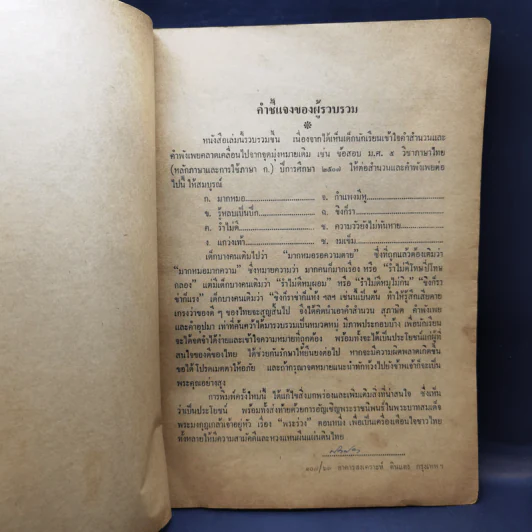 คำชี้แจงของผู้รวบรวม
หนังสือเล่มนี้รวบรวมขึ้น เนื่องจากได้เห็นเด็กนักเรียนเข้าใจคำสำนวนและ
คำพังเพยคลาดเคลื่อนไปจากจุดมุ่งหมายเดิม เช่น ข้อสอบ ม.ศ. ๕ วิชาภาษาไทย
(หลักภาษาและการใช้ภาษา ก.) ปีการศึกษา ๒๕๐๗ ให้ต่อสำนวนและคำพังเพยต่อ
ไปนี้ ให้สมบูรณ์
ก. มากหมอ จ. กำแพงมีหู
ข. รู้หลบเป็นปีก ฉ. ขิงก็รา
ค. รำไม่ดี ช. ความวัวยังไม่ทันหาย
ง. แกว่งเท้า ซ. งมเข็ม
เด็กบางคนเติมไปว่า "มากหมอรอยความตาย" ซึ่งที่ถูกแล้วต้องเติมว่า
"มากหมอมากความ" ซึ่งหมายความว่า มากคนก็มากเรื่อง หรือ "รำไม่ดีโทษปี่โทษ
กลอง" แต่มีเด็กบางคนเติมว่า หรือ "ขิงก็รา
ข่าก็แรง" เด็กบางคนเติมว่า "ขิงก็ราข่าก็แห้ง ฯลฯ เช่นนี้เป็นต้น ทำให้รู้สึกเสียดาย
เกรงว่าของดี ๆ ของไทยจะสูญสิ้นไป จึงได้คิดนำเอาคำสำนวน สุภาษิต คำพังเพย
และคำอุปมา เท่าที่ค้นคว้าได้มารวบรวมเป็นหมวดหมู่ มีภาพประกอบบ้าง เพื่อนักเรียน
จะได้จดจำได้ง่ายและเข้าใจความหมายที่ถูกต้อง พร้อมทั้งจะได้เป็นประโยชน์แก่ผู้ที่
สนใจของดีของไทย ได้ช่วยกันรักษาให้ยืนยงต่อไป หากจะมีความผิดพลาดเกิดขึ้น
ขอได้โปรดเมตตาให้อภัย และถ้ากรุณาจดหมายแนะนำทักท้วงไปยังข้าพเจ้าก็จะเป็น
พระคุณอย่างสูง
การพิมพ์ครั้งใหม่นี้ ได้แก้ไขสิ่งบกพร่องและเพิ่มเติมสิ่งที่น่าสนใจ ซึ่งเห็น
ว่าเป็นประโยชน์ พร้อมทั้งส่งท้ายด้วยการอัญเชิญพระราชนิพนธ์ในพระบาทสมเด็จ
พระมงกุฎเกล้าเจ้าอยู่หัว เรื่อง "พระร่วง" ตอนหนึ่ง เพื่อเป็นเครื่องเตือนใจชาวไทย
ทั้งหลายให้มีความสามัคคีและหวงแหนผืนแผ่นดินไทย
อาคารสงเคราะห์ ดินแดง กรุงเทพฯ